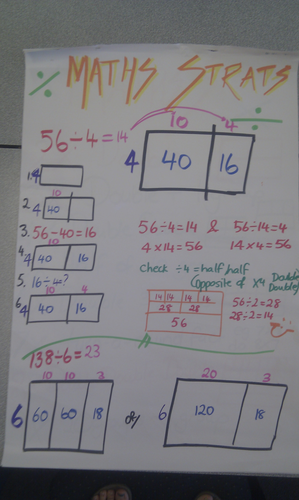 ÷ MATHS STRATS ÷
56÷4=14
10 4
4 40 16
1. 4
10
2. 4 40
3. 56-40=16
10
4. 4 40 16
5. 16÷4=?
10 4
6. 4 40 16
56÷4=14 & 56÷14=4
4x14=56 14x4=56
Check ÷4=half/half
(opposite of x4 Double
Double)
14 14 14 14
28 28
56
56÷2=28
28÷2=14
138÷6=23
10 10 3
6 60 60 18
or
20 3
6 120 18